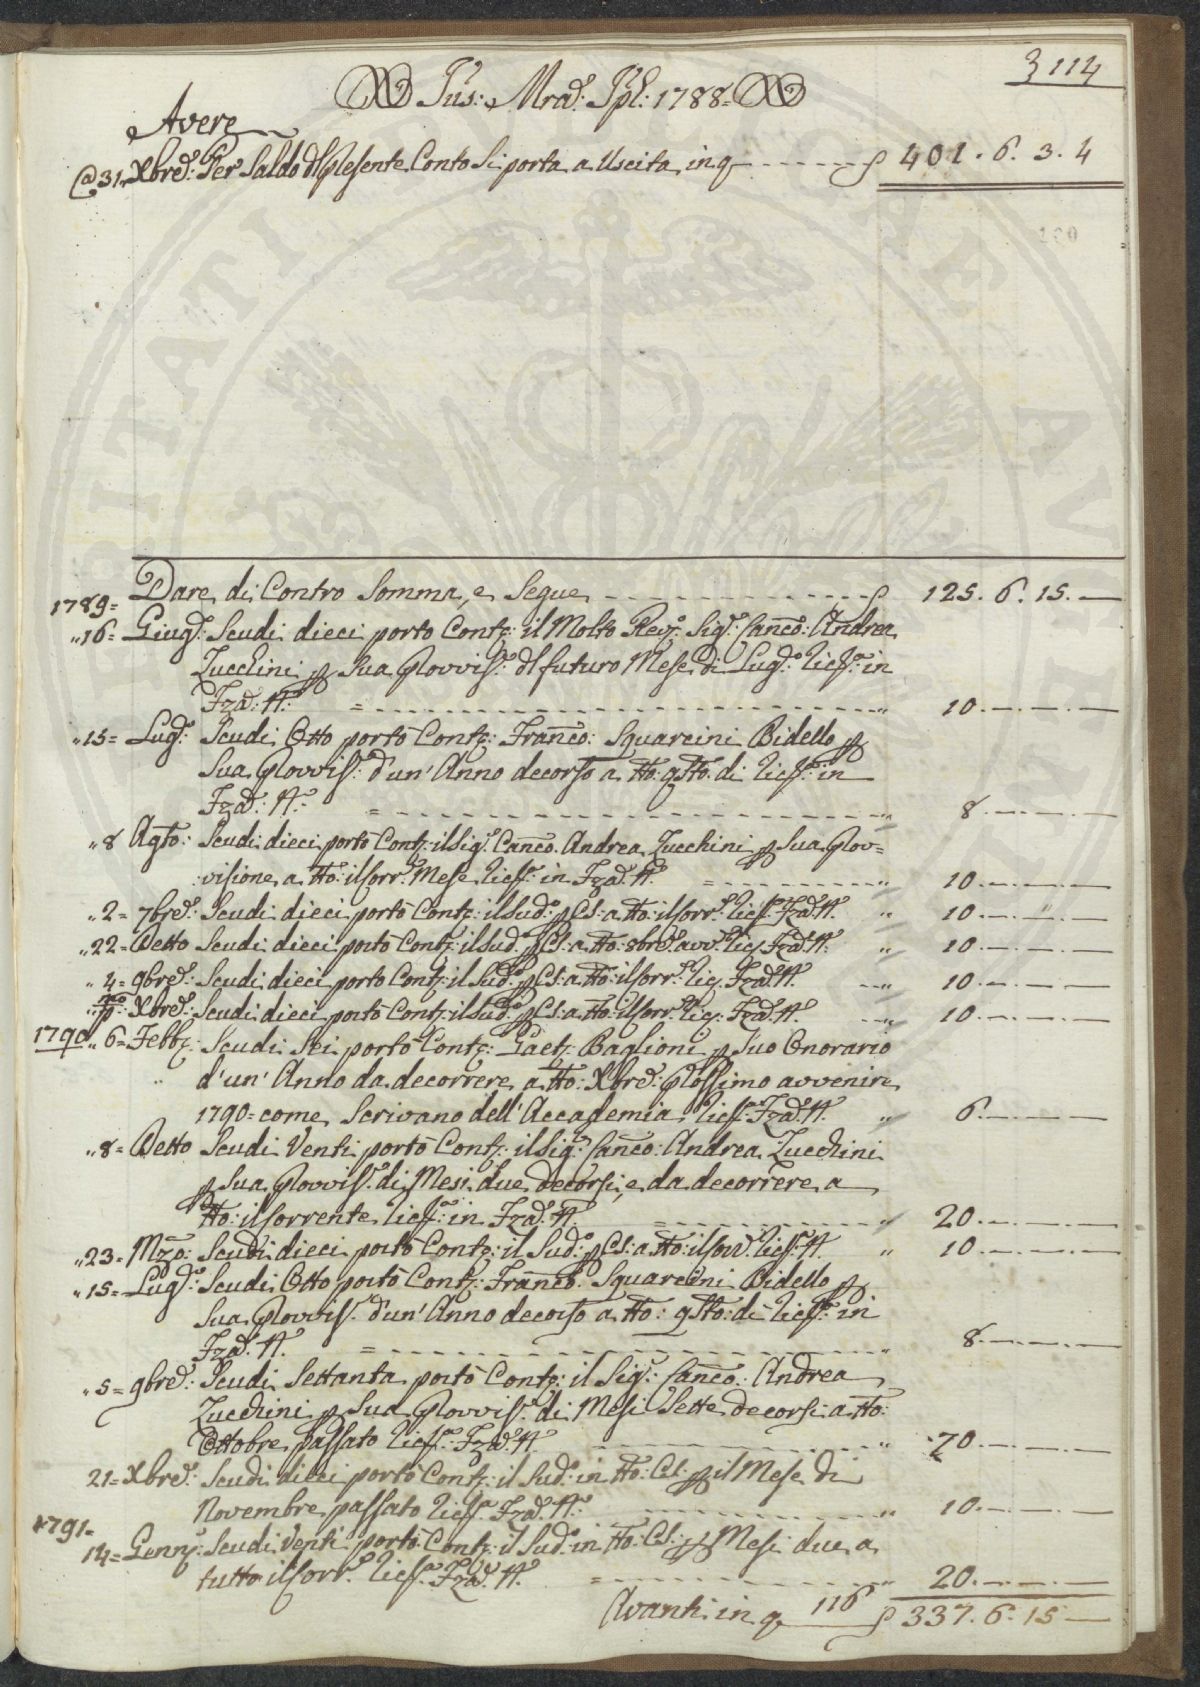 3 114
Jus: Mrad: Jpl: 1788=
Avere
@ 31. Xbre: Per Saldo dl presente Conto Si porta a Uscita in q ƒ 401. 6. 3. 4
100
Dare di Contro Somma, e Segue ƒ 125. 6. 15. —
1789=
"16= Giug: Scudi dieci portò Contj: il Molto Rev: Sig: Canco: Andrea
Zucchini p Sua Provvis: dl futuro Mese di Lug: Licz: in
Fza: A: = " 10. — . —
"15= Lug: Scudi Otto portò Contj: Franco: Squarcini Bidello p
Sua Provvis: d'un' Anno decorso a tto: qsto: dì Licz: in
Fza: A: = " 8. — . —
"8 Agto: Scudi dieci portò Contj: il Sig: Canco. Andrea Zucchini p Sua Prov=
visione a tto: il Corr: Mese Licz: in Fza: A: = " 10. — . —
"2= 7bre: Scudi dieci portò Contj: il Sud: p Cs: a tto: il Corr: Licz: Fza: A: " 10. — . —
"22= Detto Scudi dieci portò Contj: il Sud: p Cs: a tto: 8bre: avv: Licz: Fza: A: " 10. — . —
"4= 9bre: Scudi dieci portò Contj: il Sud: p Cs: a tto: il Corr: Licz: Fza: A: " 10. — . —
"pmo: Xbre: Scudi dieci portò Contj: il Sud: p Cs: a tto: il Corr: Licz: Fza: A: " 10. — . —
1790 " 6= Febb: Scudi Sei portò Contj: Gaet: Baglioni p Suo Onorario
d'un' Anno da decorrere a tto: Xbre: prossimo avvenire
1790= come Scrivano dell' Accademia Licz: Fza: A: " 6. — . —
"8= Detto Scudi Venti portò Contj: il Sig: Canco: Andrea Zucchini
p Sua Provvis: di Mesi due decorsi, e da decorrere a
tto: il Corrente Licz: in Fza: A: = " 20. — . —
"23= Mzo: Scudi dieci portò Contj: il Sud: p Cs: a tto: il Corr: Licz: A: " 10. — . —
"15= Lug: Scudi Otto portò Contj: Franco: Squarcini Bidello p
Sua Provvis: d'un' Anno decorso a tto: qsto: dì Licz: in
Fza: A: = " 8. — . —
"5= 9bre: Scudi Settanta portò Contj: il Sig: Canco: Andrea
Zucchini p Sua Provvis: di Mesi Sette decorsi a tto:
Ottobre passato Licz: Fza: A: " 70. — . —
21= Xbre: Scudi dieci portò Contj: il Sud: in tto: Cs: p il Mese di
Novembre passato Licz: Fza: A: " 10. — . —
1791=
14= Genn: Scudi Venti portò Contj: il Sud: in tto: Cs: p Mesi due a
tutto il Corr: Licz: Fza: A: = " 20. — . —
Avanti in q 116 ƒ 337. 6. 15 —